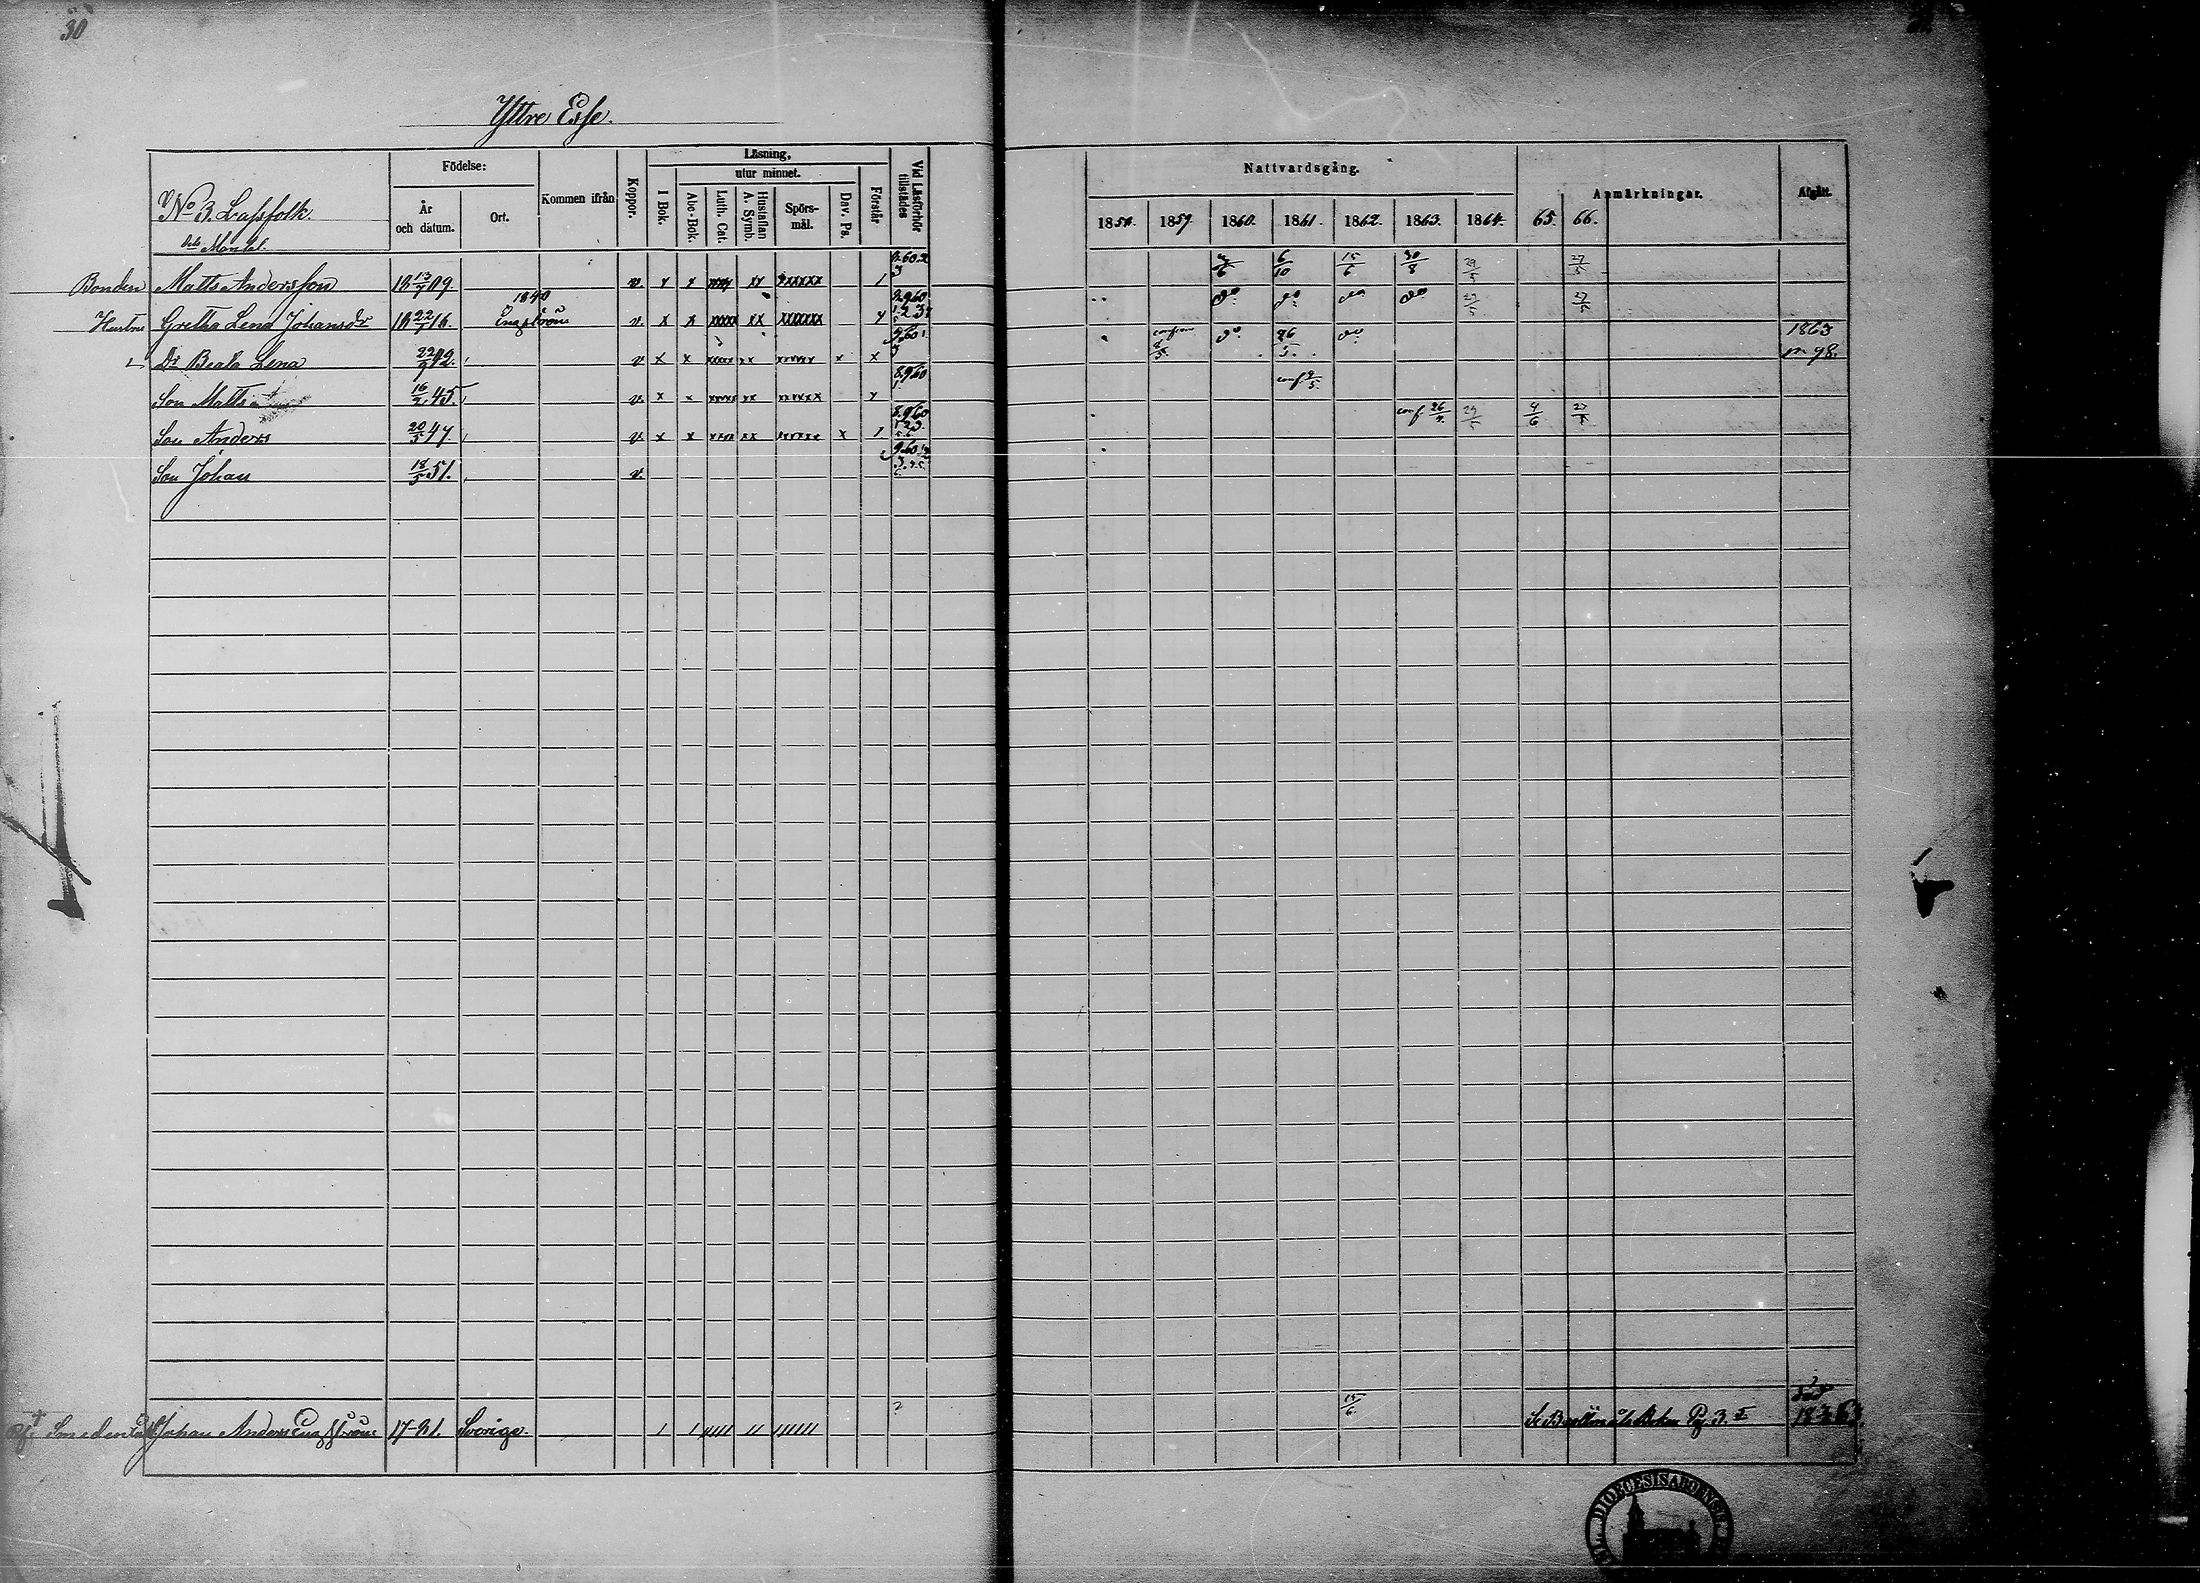 30
Yttre Esse.
Födelse:
Kommen ifrån
Koppor.
Läsning,
utur minnet.
Förstår
Vid Läsförhör tillstädes
År och dátum.
Ort.
I Bok.
Abc-Bok.
Luth. Cat.
Hustaflan A. Symb.
Spörsmål.
Dav. Ps.
Nattvardsgång.
Anmärkningar.
Afgått.
1858. 1859. 1860. 1861. 1862. 1863. 1864. 65. 66.
No 3. Lassfolk.
Mantal.
Bonden Matts Andersson 18 13/7 09. v x x xxxx xx xxxxxx 1 6/10 15/6 30/8 29/5 27/5
1840
Hustru Gretha Lena Johansdr 18 22/7 16. Engström v. x x xxxxx xx xxxxxxx do do do do 27/5
Dr Beata Lena 22/9 42. v x x xxxxx xx xxxxxx x x do 26/5 do 1863 m 98.
Son Matts 16/2 45. v. x x xxxxx xx xxxxxx conf 9/5.
Son Anders 20/3 47. v. x x xxxxx xx xxxxxx x 1 conf. 26/4. 29/5 4/6 27/5
Son Johan 18/3 51. v.
Smeden Johan Anders Engström 17-81. Sverige. 1 1 11111 11 111111 ? 15/6. Pg 3. död
DIOECESIS ABOENSIS